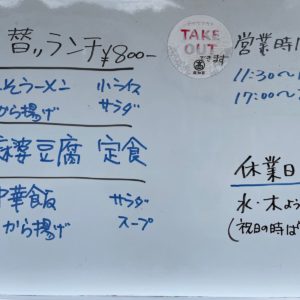 替りランチ ¥800-
そラーメン 小ライス
から揚げ サラダ
麻婆豆腐 定食
中華飯 サラダ
から揚げ スープ
TAKE
OUT
できます
営業時
11:30〜
17:00〜
休業日
水・木よう
(祝日の時は